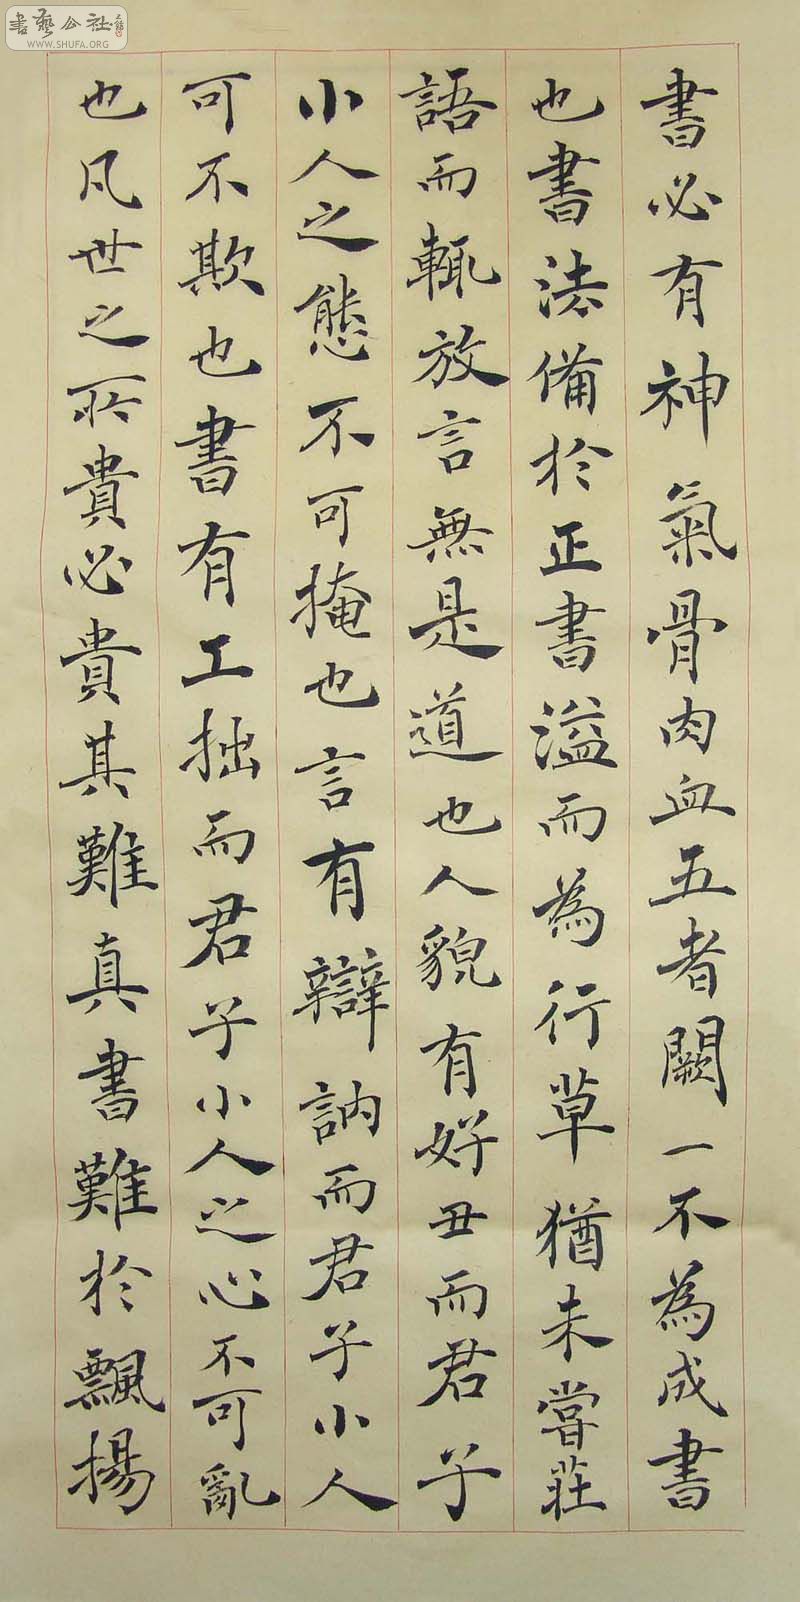 書藝公社
WWW.SHUFA.ORG
書必有神氣骨肉血五者闕一不為成書
也書法備於正書溢而為行草猶未嘗莊
語而輒放言無是道也人貌有好丑而君子
小人之態不可掩也言有辯訥而君子小人
可不欺也書有工拙而君子小人之心不可亂
也凡世之所貴必貴其難真書難於飄揚